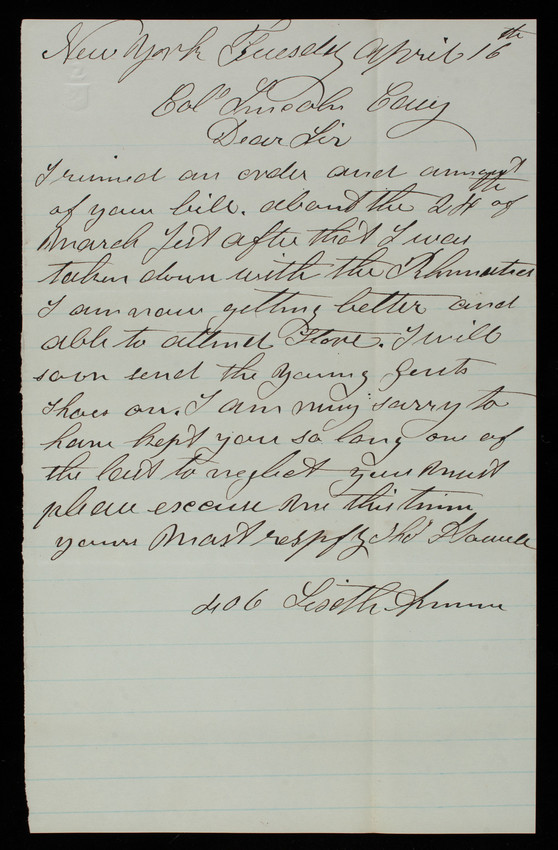 New York Tuesday April 16th
Col Lincoln Casey
Dear Sir
I recived an order and amount
of your bill. about the 24th of
March Jest after that I was
taken down with the Rhumaties
I am now getting better and
able to attend Store. I will
soon send the Young Gents
Shoes on. I am very sorry to
have kept you so long one of
the last to neglect you must
please excuse me this time
yours Most respfy Tho
406 Sixth Avenue